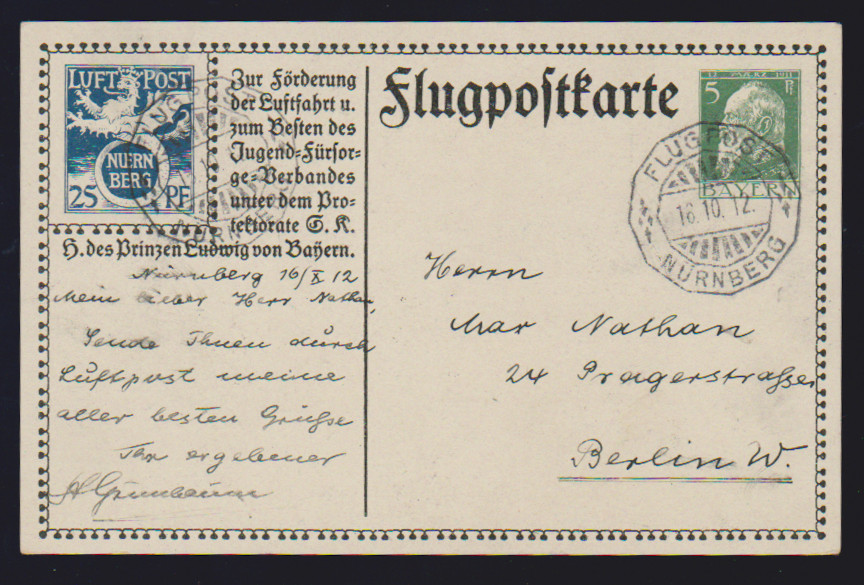 LUFT POST
NÜRN
BERG
25 PF
Zur Förderung
der Luftfahrt u.
zum Besten des
Jugend-Fürsor-
ge-Verbandes
unter dem Pro-
tektorate S. K.
H. des Prinzen Ludwig von Bayern.
Nürnberg 16/X 12
Mein lieber Herr Nathan,
Sende Ihnen durch
Luftpost meine
aller besten Grüsse
Ihr ergebener
Grünbaum
Flugpostkarte
12 MAERZ 1911
5 Pf
BAYERN
FLUGPOST
16.10.12.
NÜRNBERG
Herrn
Max Nathan
24 Pragerstrasse
Berlin W.